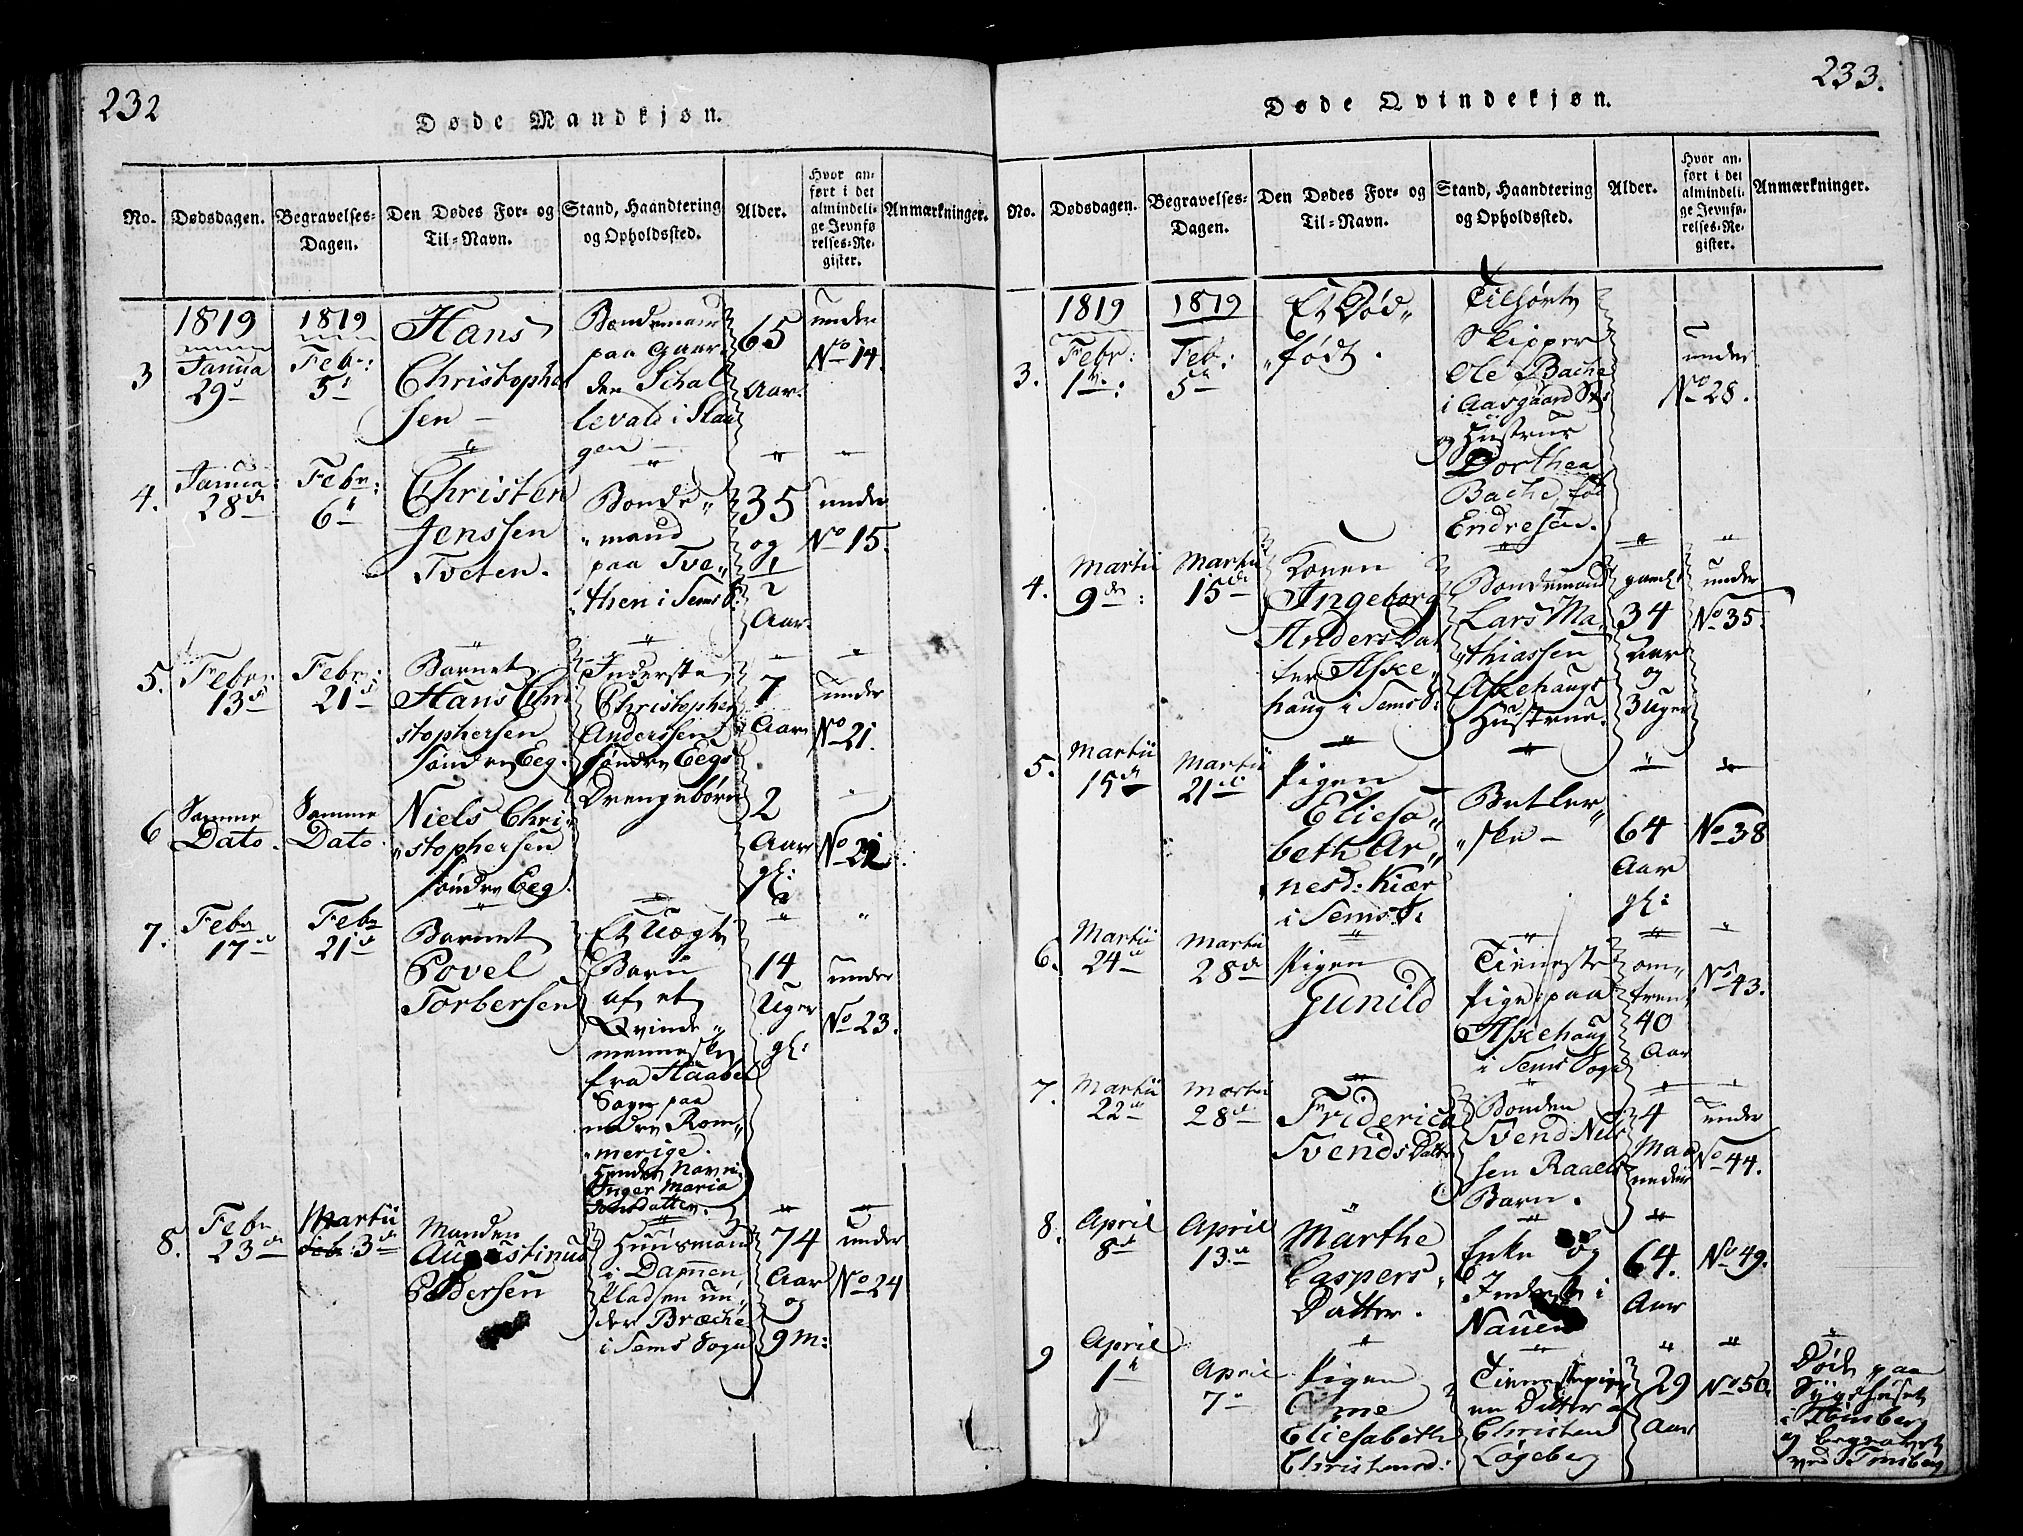 232
Døde Mandkjøn.
No.
Dødsdagen.
Begravelses-
Dagen.
Den Dødes For- og
Til-Navn.
Stand, Haandtering
og Opholdssted.
Alder.
Hvor an-
ført i det
almindeli-
ge Jevnfø-
relses-Re-
gister.
Anmærkninger.
3
1819
Janua
29
1819
Febr:
5
Hans
Christopher
sen
Bondemand
paa Gaar-
den Schal
levald i Slaa
gen
65
Aar.
under
No 14.
4.
Janua:
28de
Febr:
6
Christen
Jenssen
Tveten.
Bonde-
mand
paa Tve-
then i Sems S:
35
og
1/2
Aar.
under
No 15.
5.
Febr:
13de
Febr:
21de
Barnet
Hans Chri
stophersen
Søndre Eeg.
Inderste
Christopher
Anderssen
Søndre Eegs
Drengebørn
7
Aar
under
No 21.
6
Samme
Dato.
Samme
Dato
Niels Chri-
stophersen
Søndre Eeg.
2
Aar
gl:
No 22.
7.
Febr
17de
Febr
21de
Barnet
Povel
Torbersen
Et Uægte
Barn
af et
Qvinde-
menneske
fra Haabel
Sogn paa
nedre Rom-
merige.
Hendes Navn:
Inger Maria
14
Uger
gl:
under
No 23.
8.
Febr
23de
Martii
3de
Manden
Augustinus
Pedersen
Huusmand
i Dammen
Pladsen un-
der Bræche
i Sems Sogn
74
Aar
og
9 M:
under
No 24
233.
Døde Qvindekjøn.
No.
Dødsdagen.
Begravelses-
Dagen.
Den Dødes For- og
Til-Navn.
Stand, Haandtering
og Opholdssted.
Alder.
Hvor an-
ført i det
almindeli-
ge Jevnfø-
relses-Re-
gister.
Anmærkninger.
3.
1819
Febr:
1te:
1819
Feb:
5te
Et Død-
født.
Tilhørte
Skipper
Ole Bache
i Aasgaard
og Hustrue
Dorthea
Bache, fød
Endresen.
under
No 28.
4.
Martii
9de:
Martii
15de
Konen
Ingeborg
Anders Dat
ter Aske-
haug i Sems S:
Bondemand
Lars Ma-
thiassen
Askehaugs
Hustrue.
34
Aar
og
3 Uger
under
No 35.
5.
Martii
15de
Martii
21de
Pigen
Eliesa-
beth Ar-
nesd: Kiær
i Sems S:
Betler-
ske
64
Aar
gl:
No 38
6.
Martii
24de
Martii
28de
Pigen
Gunild
Tieneste
Pige paa
Askehaug
i Sems Sogn
om-
trent
40
Aar
No 43.
7.
Martii
22de
Martii
28de
Friderica
Svends Datter
Bonden
Svend Nils
sen Raaels
Barn.
4
Maa
neder
under
No 44.
8.
April
8de
April
13de
Marthe
Caspers
Datter.
Enke og
Inderste i
Nauen
64.
Aar
No 49.
9
April
1te
April
7de
Pigen
Ane
Eliesabeth
Christensd:
Tienestepige
en Datter af
Christen
Løgeberg
29
Aar
No 50.
Døde paa
Sygehuset
i Tønsberg
og begravet
ved Tønsberg